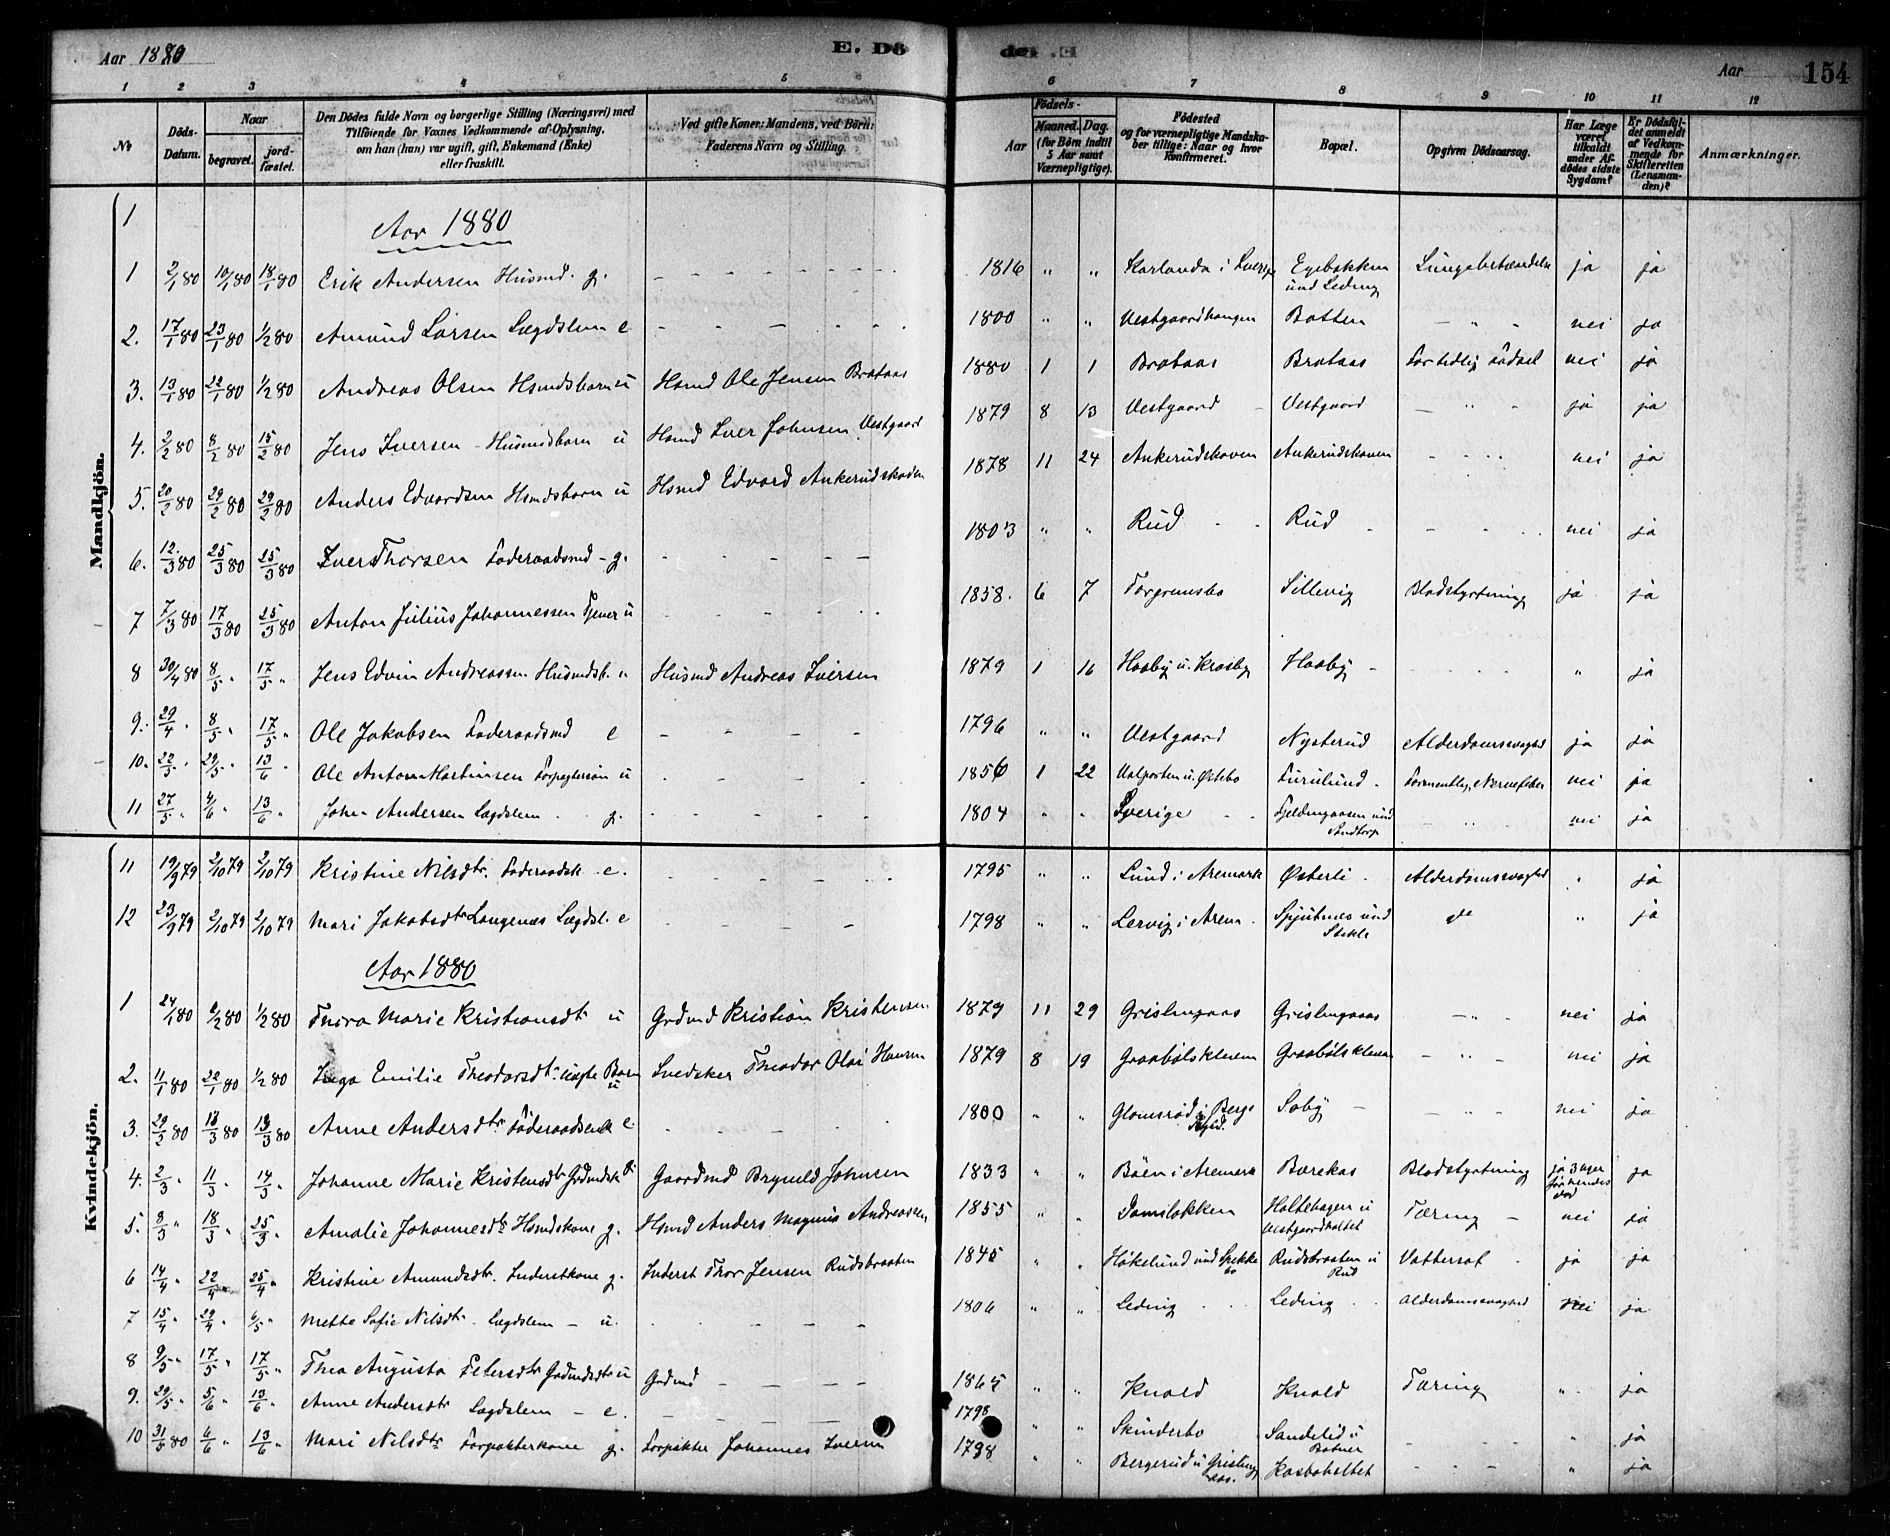 Aar 1880 E. Dö de. E Aar 154
1 2 3 4 5 6 7 8 9 10 11 12
No Döds-Datum. Naar begravet. jord-fæstet. Den Dödes fulde Navn og borgerlige Stilling (Næringsvei) med Tilföiende for Voxnes Vedkommende af Oplysning, om han (hun) var ugift, gift, Enkemand (Enke) eller fraskilt. Ved gifte Koner: Mandens, ved Börn: Faderens Navn og Stilling. Födsels- Aar Maaned. Dag. (for Börn indtil 5 Aar samt Værnepligtige). Födested og for værnepligtige Mandskaber tillige: Naar og hvor Konfirmeret. Bopæl. Opgiven Dödsaarsag. Har Læge været tilkaldt under Afdödes sidste Sygdom? Er Dödsfaldet anmeldt af Vedkommende for Skifteretten (Lensmanden)? Anmærkninger.
Mandkjön.
1 Aar 1880
1 2/1 80 10/1 80 18/1 80 Erik Andersen Husmd. g. 1816 " " Karlanda i Sverige Egebakken und Leding Lungebetændelse ja ja
2. 17/1 80 23/1 80 1/2 80 Amund Larsen Lægdslem e 1800 " " Vestgaardhaugen Botten - " - nei ja
3. 13/1 80 22/1 80 1/2 80 Andreas Olsen Hsmdsbarn u Hsmd Ole Jensen Brataas 1880 1 1 Brataas Brataas For tidlig Födsel nei ja
4. 2/2 80 8/2 80 15/2 80 Jens Iversen Husmdbarn u Hsmd Iver Johnsen Vestgaard 1879 8 13 Vestgaard Vestgaard - " - ja ja
5. 20/2 80 29/2 80 29/2 80 Anders Edvardsen Hsmdsbarn u Hsmd Edvard Ankerudskoven 1878 11 24 Ankerudskoven Ankerudskoven nei ja
6. 12/3 80 25/3 80 25/3 80 Iver Thorsen Föderaadsmd - g. 1803 " " Rud Rud nei ja
7 7/3 80 17/3 80 25/3 80 Anton Julius Johannessen Tjener u 1858. 6 7 Torgrimsbo Sillevig Blodstyrtning ja ja
8 30/4 80 8/5 " 17/5 " Jens Edvin Andreassen Husmdsb. u Husmd Andreas Iversen 1879 1 16 Haaby u. Krosby Haaby " ja
9. 29/4 " 8/5 " 17/5 " Ole Jakobsen Föderaadsmd e 1796 " " Vestgaard Nysterud Alderdomssvaghed ja ja
10. 22/5 " 29/5 " 13/6 " Ole Anton Martinsen Forpagtersön u 1856 1 22 Valporten u. Östebo Furulund Formentlig Nervefeber nei ja
11 27/5 " 4/6 " 13/6 " John Andersen Lægdslem g. 1804 " " Sverige Fjeldmgaasen und Sandtorp nei ja
Kvindekjön.
11 19/9 79 2/10 79 2/10 79 Kristine Nilsdtr. Föderaadsk e. 1795 " " Lund i Aremark Österli Alderdomssvaghed " ja
12 23/9 79 2/10 79 2/10 79 Mari Jakobsdtr Langenæs Lægdsl. e 1798 " " Lervig i Arem. Spjutnes und Stikle do " ja
Aar 1880
1 24/1 80 1/2 80 1/2 80 Thora Marie Kristiansdtr u Grdmd Kristian Kristensen 1879 11 29 Grislingaas Grislingaas - " - nei ja
2. 11/1 80 22/1 80 1/2 80 Inga Emilie Theodorsdtr uægte Barn u Svedsker Theodor Olai Hansen 1879 8 19 Graabölskleven Graabölskleven - " - nei ja
3. 29/2 80 13/3 80 13/3 80 Anne Andersdtr Föderaadsenk e 1800 " " Glomsröd i Bergs Soby - - " - nei ja
4. 2/3 " 11/3 " 14/3 " Johanne Marie Kristensdtr Grdmdsk g Gaardmd Brynild Johnsen 1833 " " Böen i Aremark Barekas Blodstyrtning ja 3 uger för hendes död ja
5. 8/3 " 18/3 " 25/3 " Amalie Johannesdtr Hsmdskone g. Hsmd Anders Magnus Andreassen 1855 " " Damslökken Holtehagen u Vestgaardholtet Tæring - nei ja
6 14/4 " 22/4 " 25/4 " Kristine Amundsdtr. Inderstkone g. Inderst Thor Jensen Rudsbraaten 1845 " " Hökelund und Spekke bo Rudsbraaten u Rud Vattersot ja ja
7 15/4 " 29/4 " 6/5 " Mette Sofie Nilsdtr. Lægdslem - u. 1806 " " Leding Leding Alderdomssvaghed nei ja
8 9/5 " 17/5 " 17/5 " Thea Augusta Petersdtr Grdmdsdtr u Grdmd 1865 " " Knold Knold Tæring " ja
9. 29/5 " 5/6 " 13/6 " Anne Andersdtr Lægdslem - e. 1798 " " Skinderbo Sandelid u Botner " ja
10 31/5 80 6/6 " 13/6 " Mari Nilsdtr Forpakterkone g. Forpakter Johannes Iversen 1798 " " Bergerud u Grislingaas. Kasboholtet " ja